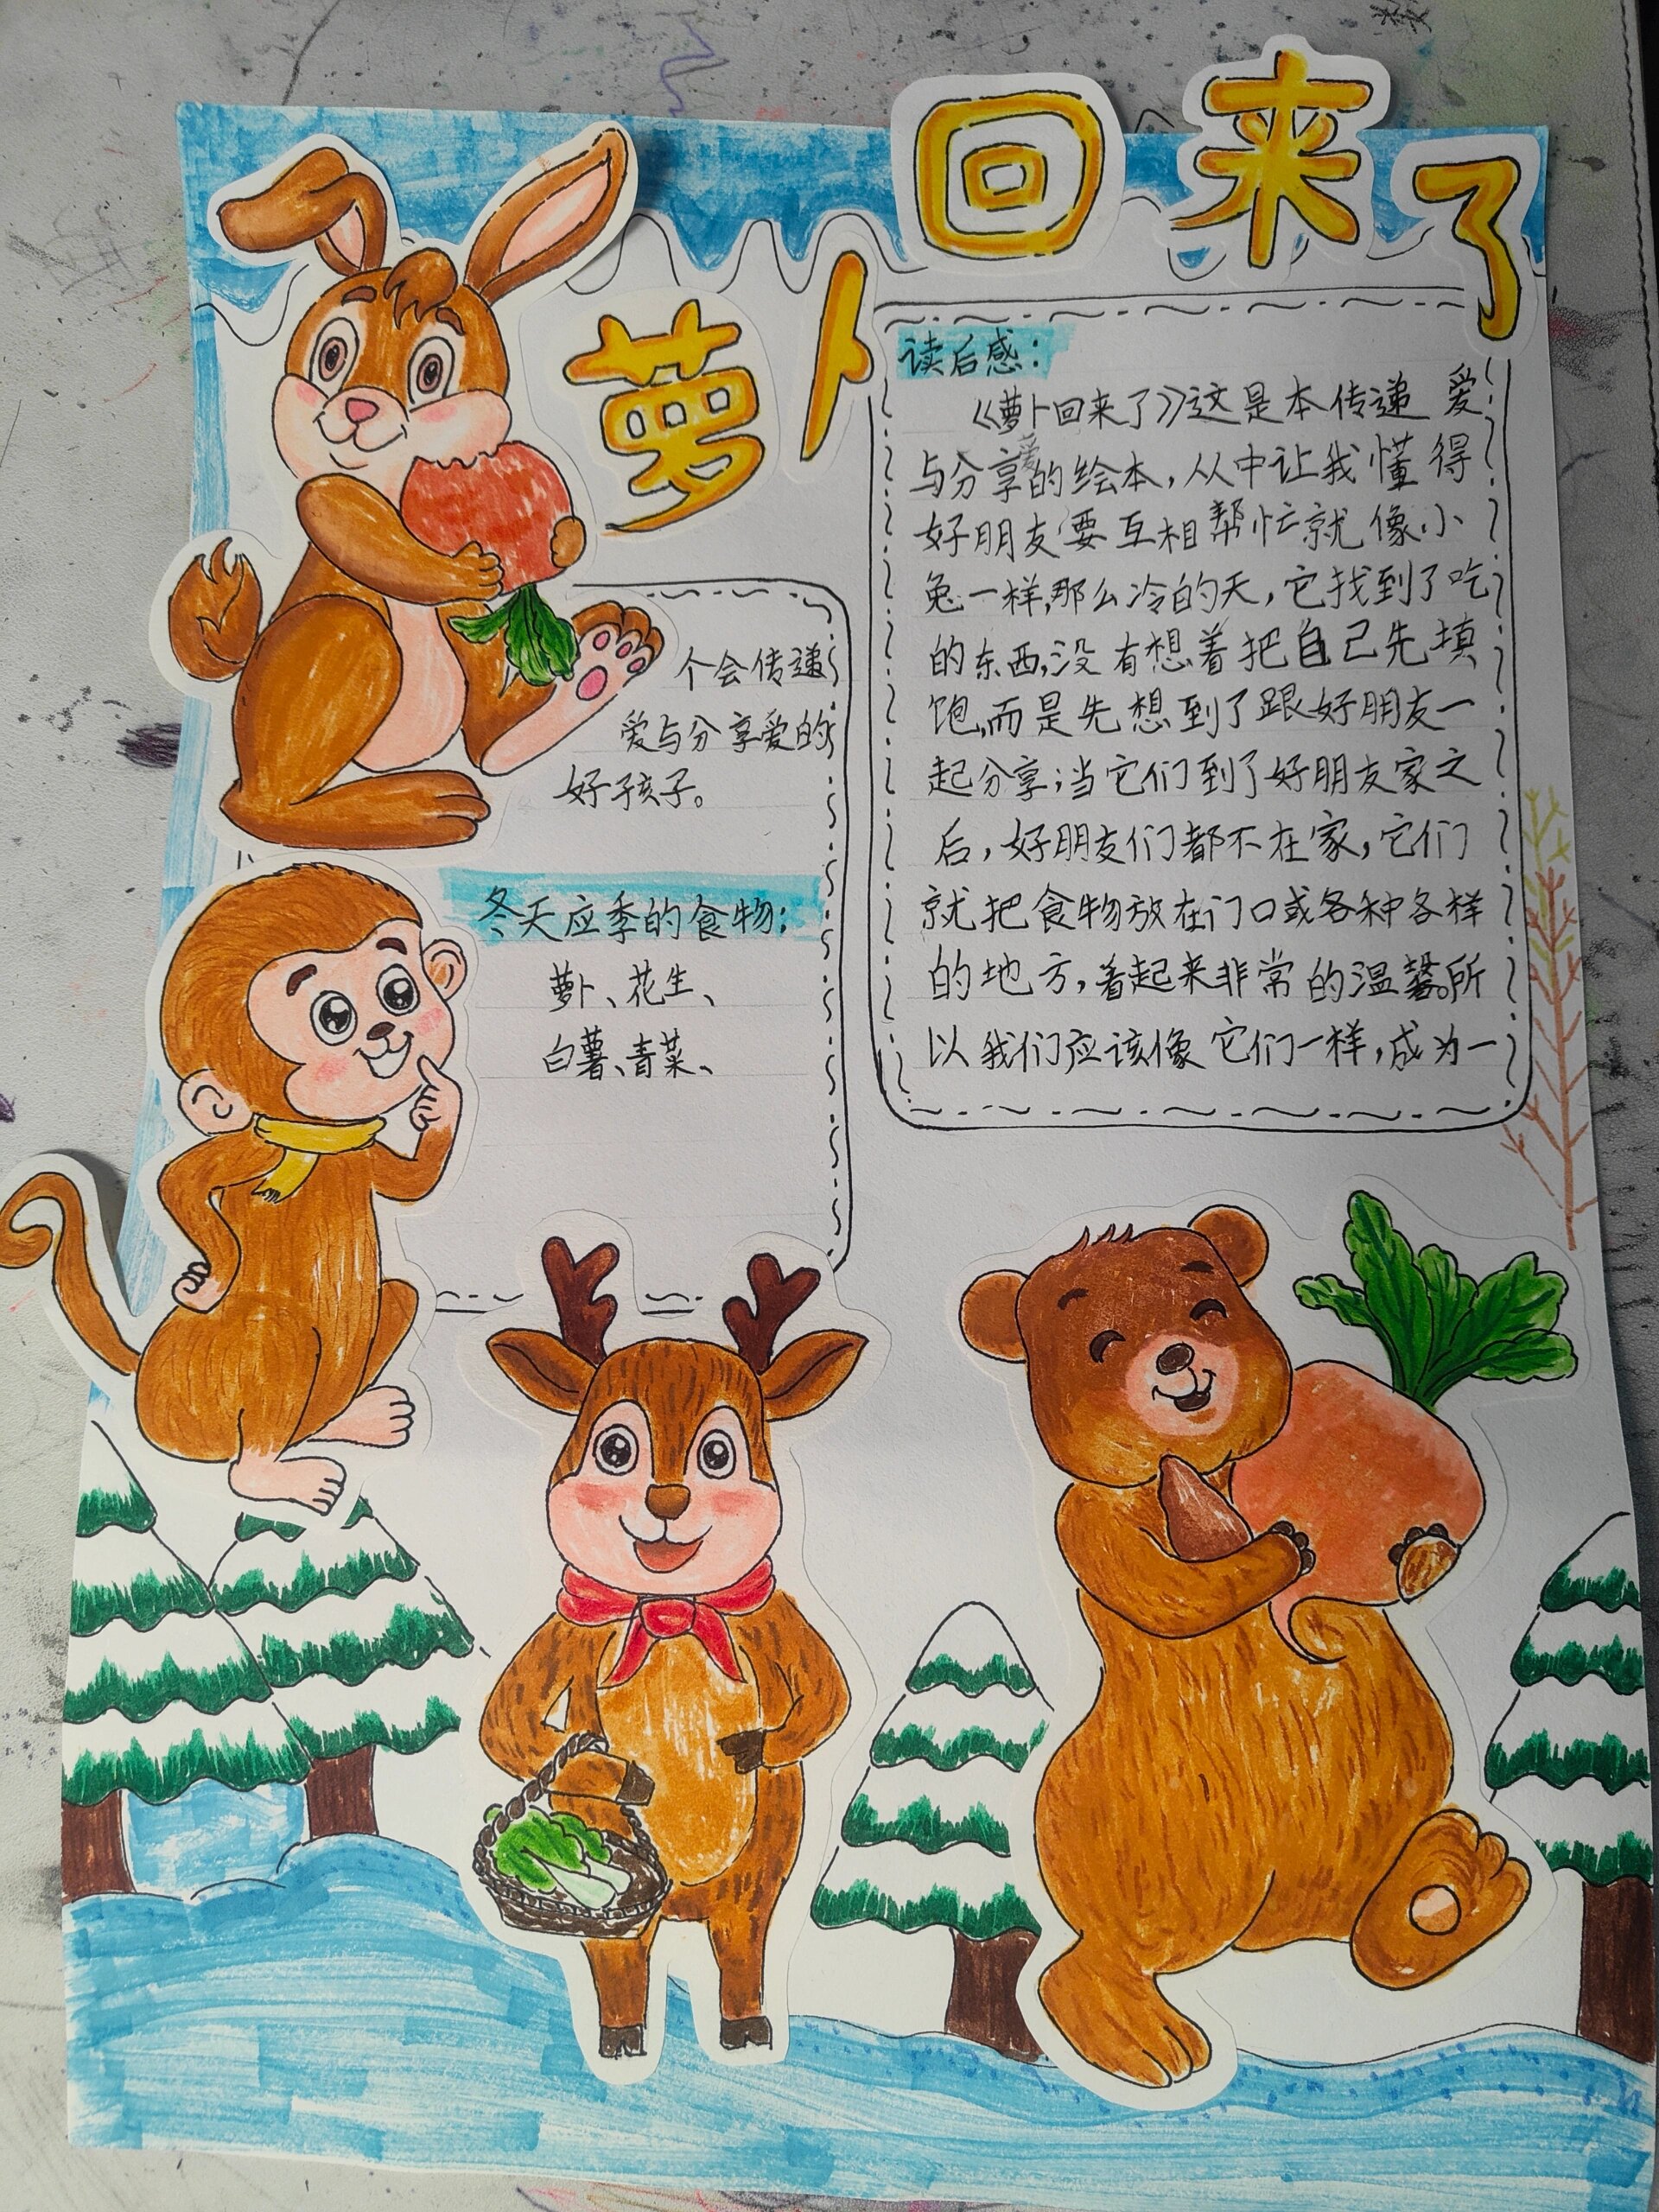 萝卜回来了
读后感：
《萝卜回来了》这是本传递爱
与分享爱的绘本，从中让我懂得
好朋友要互相帮忙就像小
兔一样，那么冷的天，它找到了吃
的东西，没有想着把自己先填
饱，而是先想到了跟好朋友一
起分享；当它们到了好朋友家之
后，好朋友们都不在家，它们
就把食物放在门口或各种各样
的地方，着起来非常的温馨。所
以我们应该像它们一样，成为一
个会传递
爱与分享爱的
好孩子。
冬天应季的食物：
萝卜、花生、
白薯、青菜、